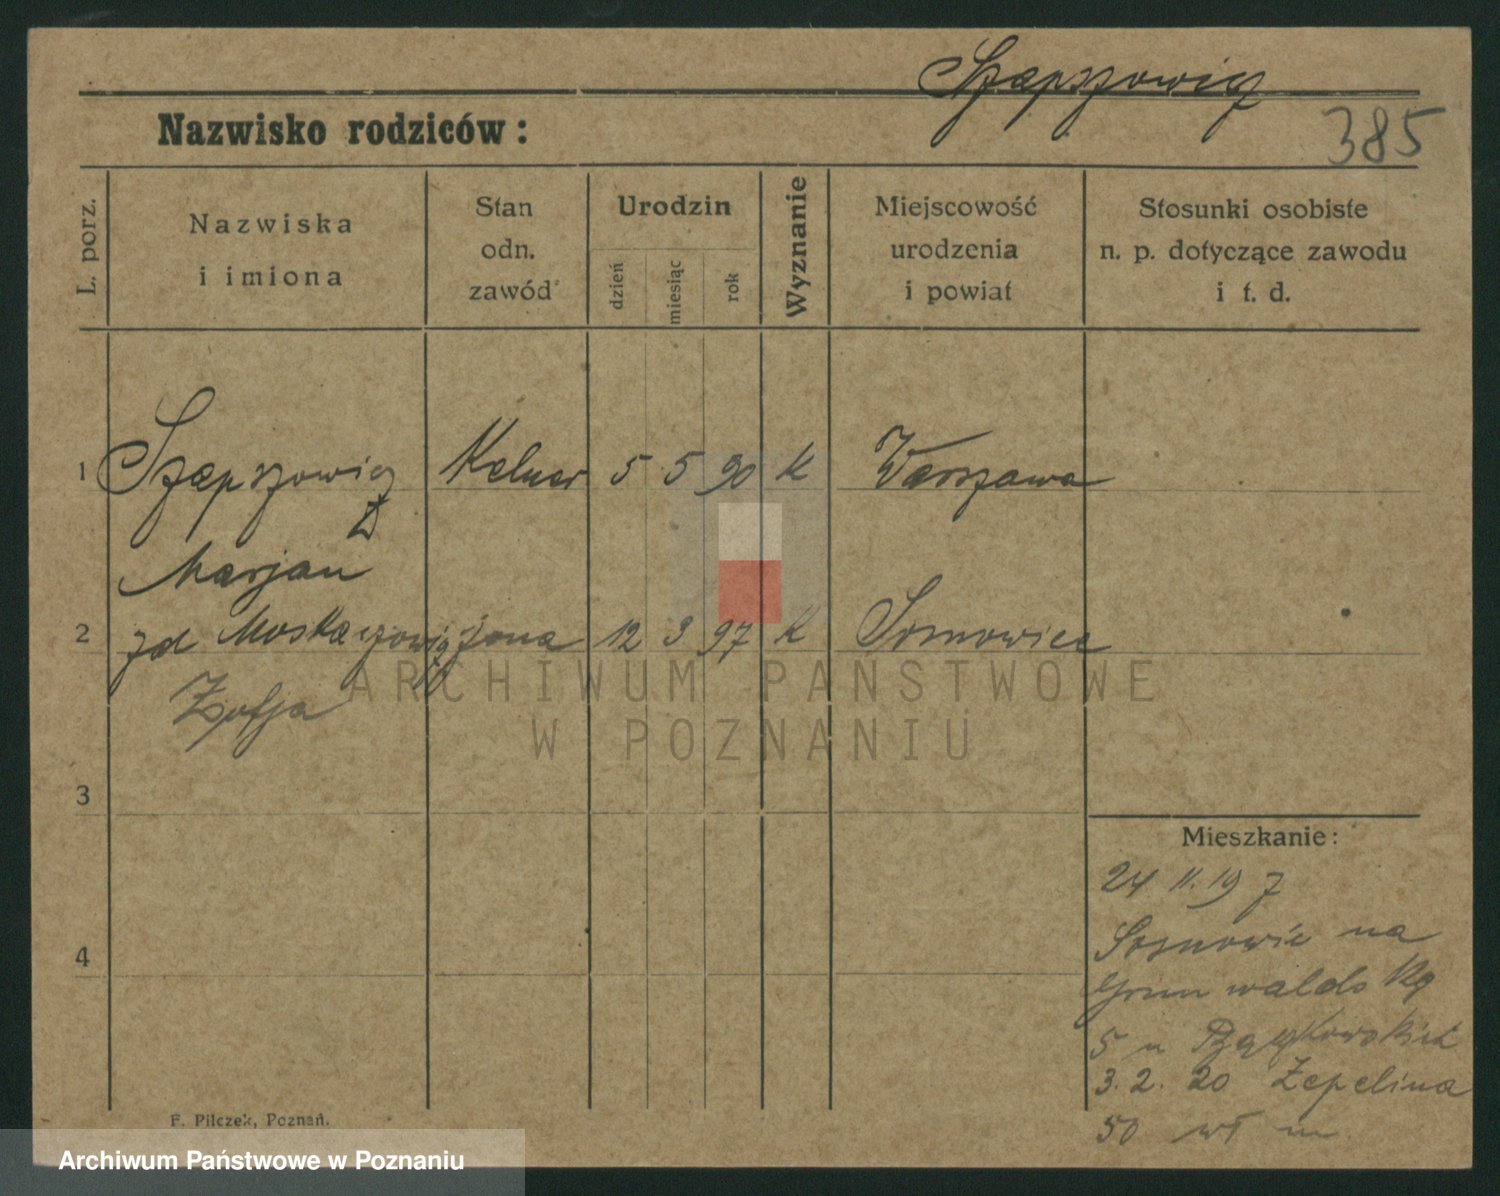 Szepszowicz
Nazwisko rodziców:
385
L. porz.
Nazwiska
i imiona
Stan
odn.
zawód
Urodzin
dzień
miesiąc
rok
Wyznanie
Miejscowość
urodzenia
i powiat
Stosunki osobiste
n. p. dotyczące zawodu
i t. d.
1 Szepszowicz Kelner 5 5 90 K Warszawa
Marjan
2 zd żona 12 3 97 K Sosnowice
Zofja
3
4
Mieszkanie:
24 11. 19 z
Sosnowic na
Grunwaldską
5 u
3. 2. 20 Zepelina
50 wł m
F. Pilczek, Poznań.
ARCHIWUM PAŃSTWOWE
W POZNANIU
Archiwum Państwowe w Poznaniu